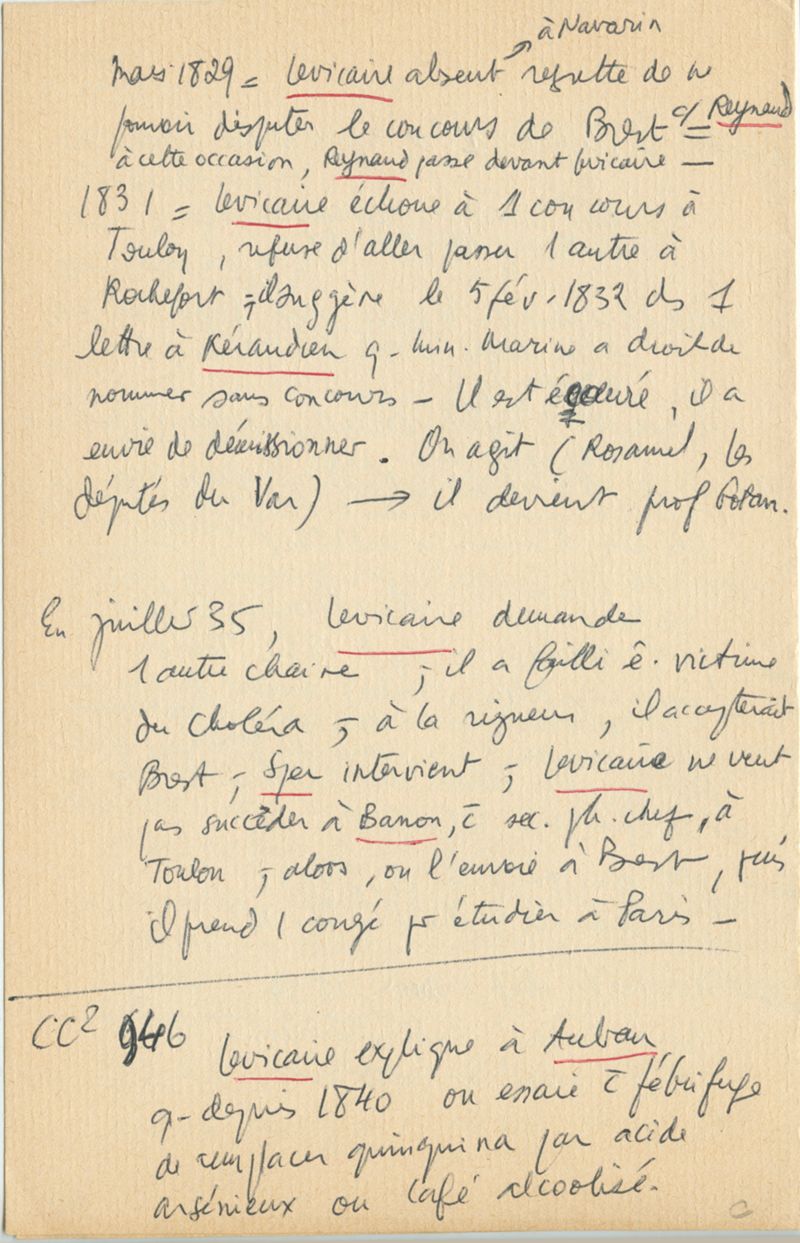 à Navarin
Mars 1829 = Levicaire absent regrette de ne
pouvoir disputer le concours de Brest c/ Reynaud =
à cette occasion, Reynaud passe devant Levicaire —
1831 = Levicaire échoue à 1 concours à
Toulon, refuse d'aller passer 1 autre à
Rochefort ; il suggère le 5 fév. 1832 ds 1
lettre à Kéraudren q. Min. Marine a droit de
nommer sans concours — Il est écœuré, il a
envie de démissionner. On agit (Rosamel, les
députés du Var) → il devient prof botan.
En juillet 35, Levicaire demande
1 autre chaire ; il a failli ê. victime
du Choléra ; à la rigueur, il accepterait
Brest ; Sper intervient ; Levicaire ne veut
pas succéder à Banon, c̄ sec. ph. chef, à
Toulon ; alors, on l'envoie à Brest, puis
il prend 1 congé pr étudier à Paris —
CC² 946
Levicaire explique à Auban
q. depuis 1840 on essaie c̄ fébrifuge
de remplacer quinquina par acide
arsénieux ou café alcoolisé.